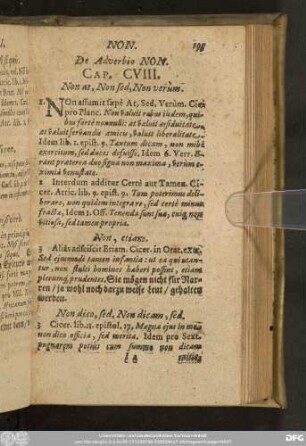 NON. 195
De Adverbio NON.
CAP. CVIII.
Non at, Non sed, Non verùm.
1. NOn assumit sæpè At, Sed, Verùm. Cic.
pro Planc. Non valuit rebus iisdem, qui-
bus fortè
at valuit servandis amicis, valuit liberalitate.
Idem lib. 1. epist. 9. Tantum dicam, non mihi
exercitum, sed duces defuisse. Idem 6. Verr. E-
rant præterea duo signa non maxima, verùm e-
ximiâ venustate.
2 Interdum additur Certè aut Tamen. Ci-
cer. Attic. lib. 9. epist. 9. Tum poterimus delibe-
rare, non quidem integrare, sed certè minus
fracta, Idem 1. Off.
tiosa, sed tamen propria.
Non, etiam.
3 Aliàs adsciscit Etiam. Cicer. in Orat.
Sed ejusmodi tamen infantia: ut ea qui utan-
tur, non stulti homines haberi possint, etiam
plerumq; prudentes. Sie mögen nicht für Nar-
ren / ja wohl noch darzu weise Leut / gehalten
werden.
Non dico, sed, Non dicam, sed.
Cicer. lib. 11. epistol. 17, Magna ejus in me
non dico officia, sed merita. Idem pro Sext.
pugnarem potiùs cum summo non dicam